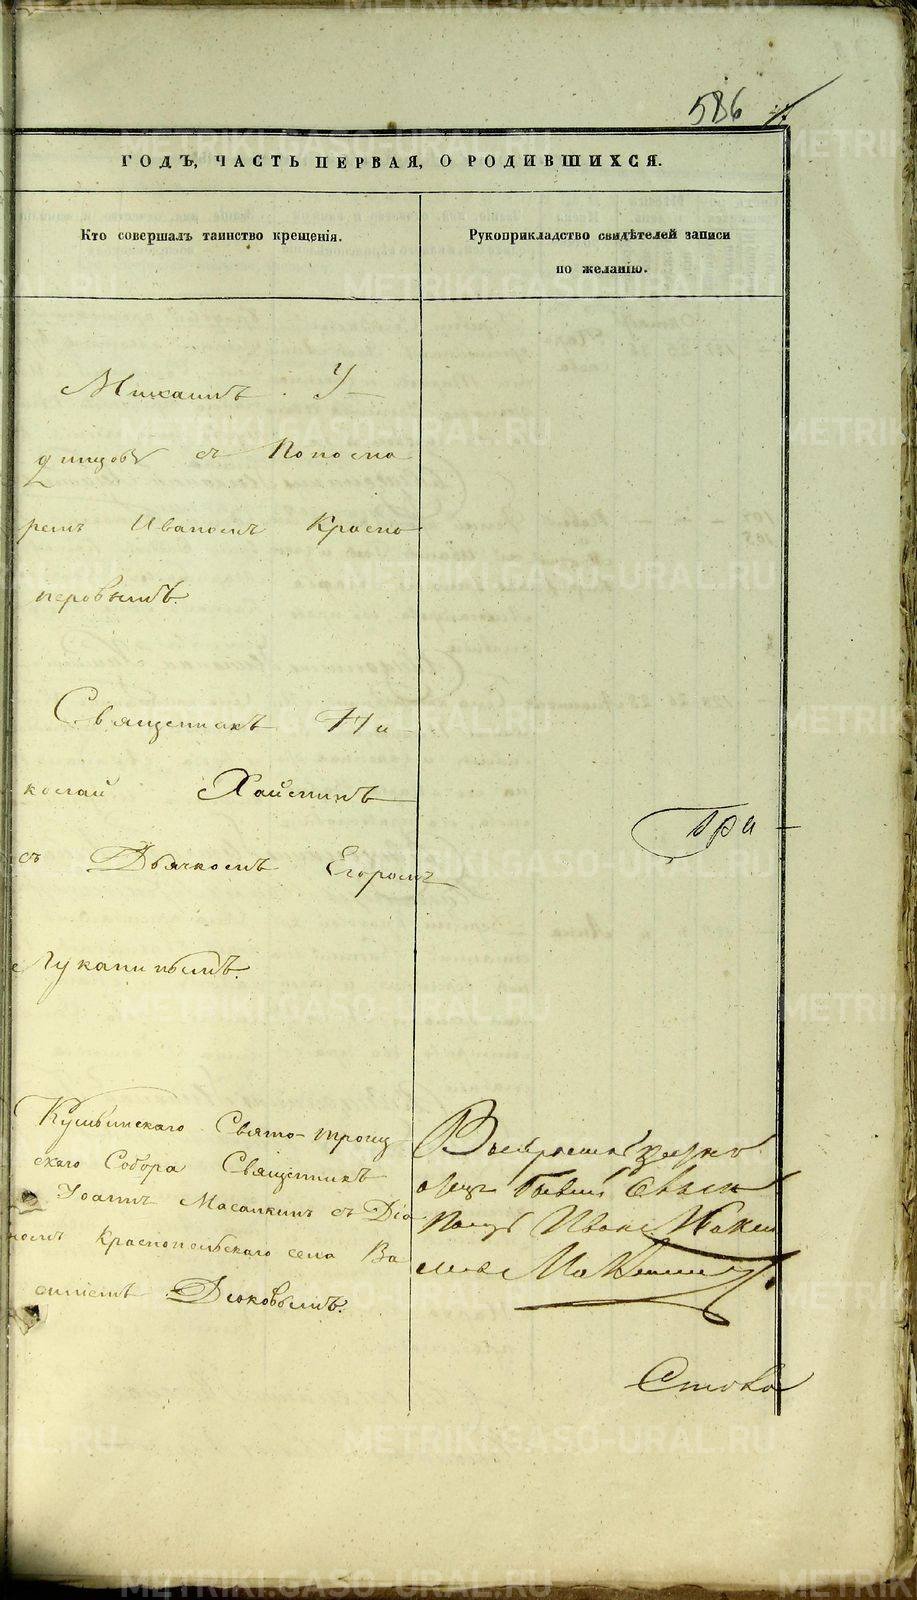 586
ГОДЪ, ЧАСТЬ ПЕРВАЯ, О РОДИВШИХСЯ.
Кто совершалъ таинство крещенія.
Рукоприкладство свидѣтелей записи
по желанію.
Михаилъ У
динцовъ съ Пономо
ремъ Иваномъ Красно
перовымъ.
Священникъ Ни
колай Хайминъ
съ Дьячкомъ Егоромъ
Лукапинымъ.
Кушвинскаго Свято-Троиц
скаго Собора Священникъ
Іоаннъ Масалкинъ съ Діа
номъ Краснопольскаго села Ва
силіемъ Дюковымъ.
Иванъ
Гри
Стова
METRIKI.GASO-URAL.RU